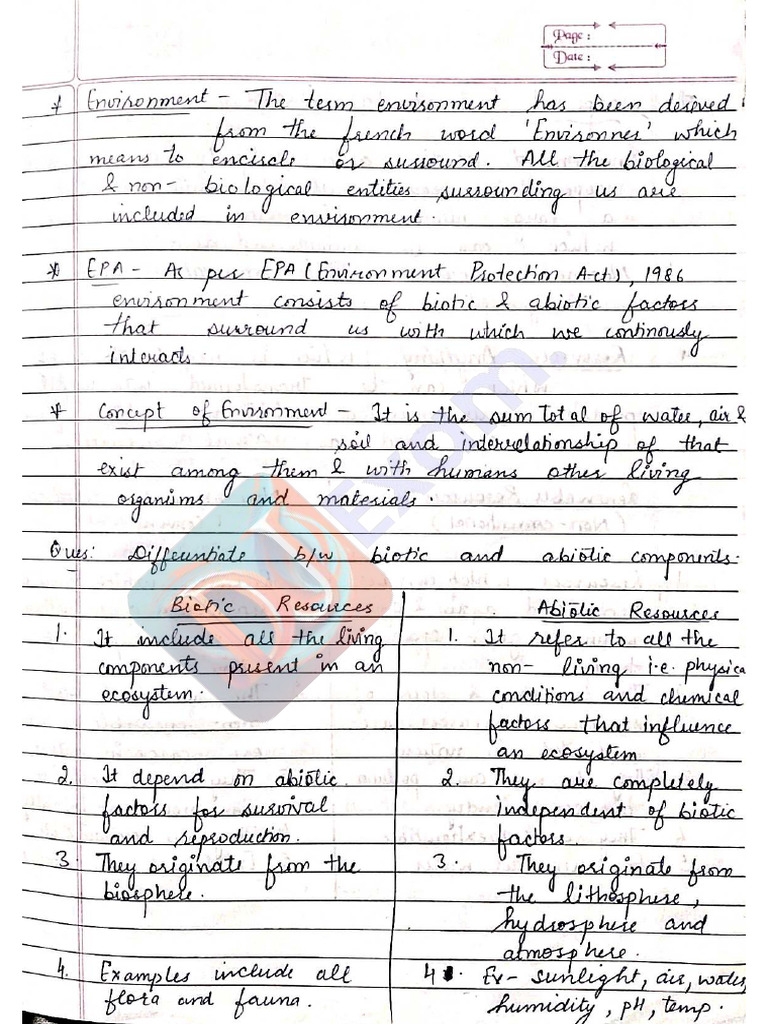 Page :
Date :
* Environment - The term environment has been derived
from the french word 'Environner' which
means to encircle or surround. All the biological
& non- biological entities surrounding us are
included in environment.
* EPA - As per EPA (Environment Protection Act), 1986
environment consists of biotic & abiotic factors
that surround us with which we continously
interacts
* Concept of Environment - It is the sum total of water, air &
soil and interrelationship of that
exist among them & with humans other living
organims and materials.
Ques: Differentiate b/w biotic and abiotic components.
Biotic Resources
1. It include all the living
components present in an
ecosystem.
2. It depend on abiotic
factors for survival
and reproduction.
3. They originate from the
biosphere.
4. Examples include all
flora and fauna.
Abiotic Resources
1. It refer to all the
non- living i.e. physica
conditions and chemical
factors that influence
an ecosystem
2. They are completely
independent of biotic
factors.
3. They originate from
the lithosphere,
hydrosphere and
atmosphere.
4. Ex- sunlight, air, water,
humidity, pH, temp.
Exam.